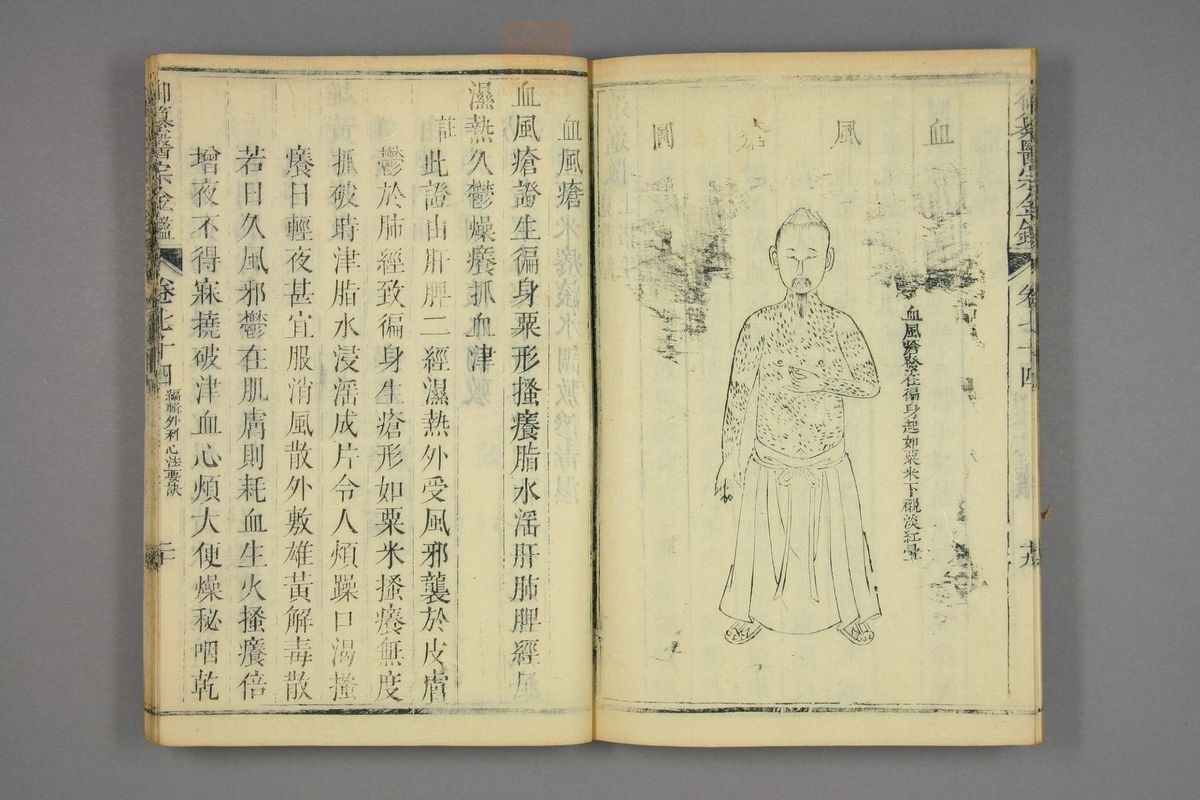 血風瘡圖
血風瘡發在徧身起如粟米下襯淡紅暈
血風瘡
血風瘡證生徧身粟形搔癢脂水淫肝肺脾經風
濕熱久鬱燥癢抓血津
註此證由肝脾二經濕熱外受風邪襲於皮膚
鬱於肺經致徧身生瘡形如粟米搔癢無度
抓破時津脂水浸淫成片令人煩躁口渴搔
癢日輕夜甚宜服消風散外敷雄黃解毒散
若日久風邪鬱在肌膚則耗血生火搔癢倍
增夜不得寐撓破津血心煩大便燥秘咽乾
御纂醫宗金鑑 卷七十四 編輯外科心法要訣 二十